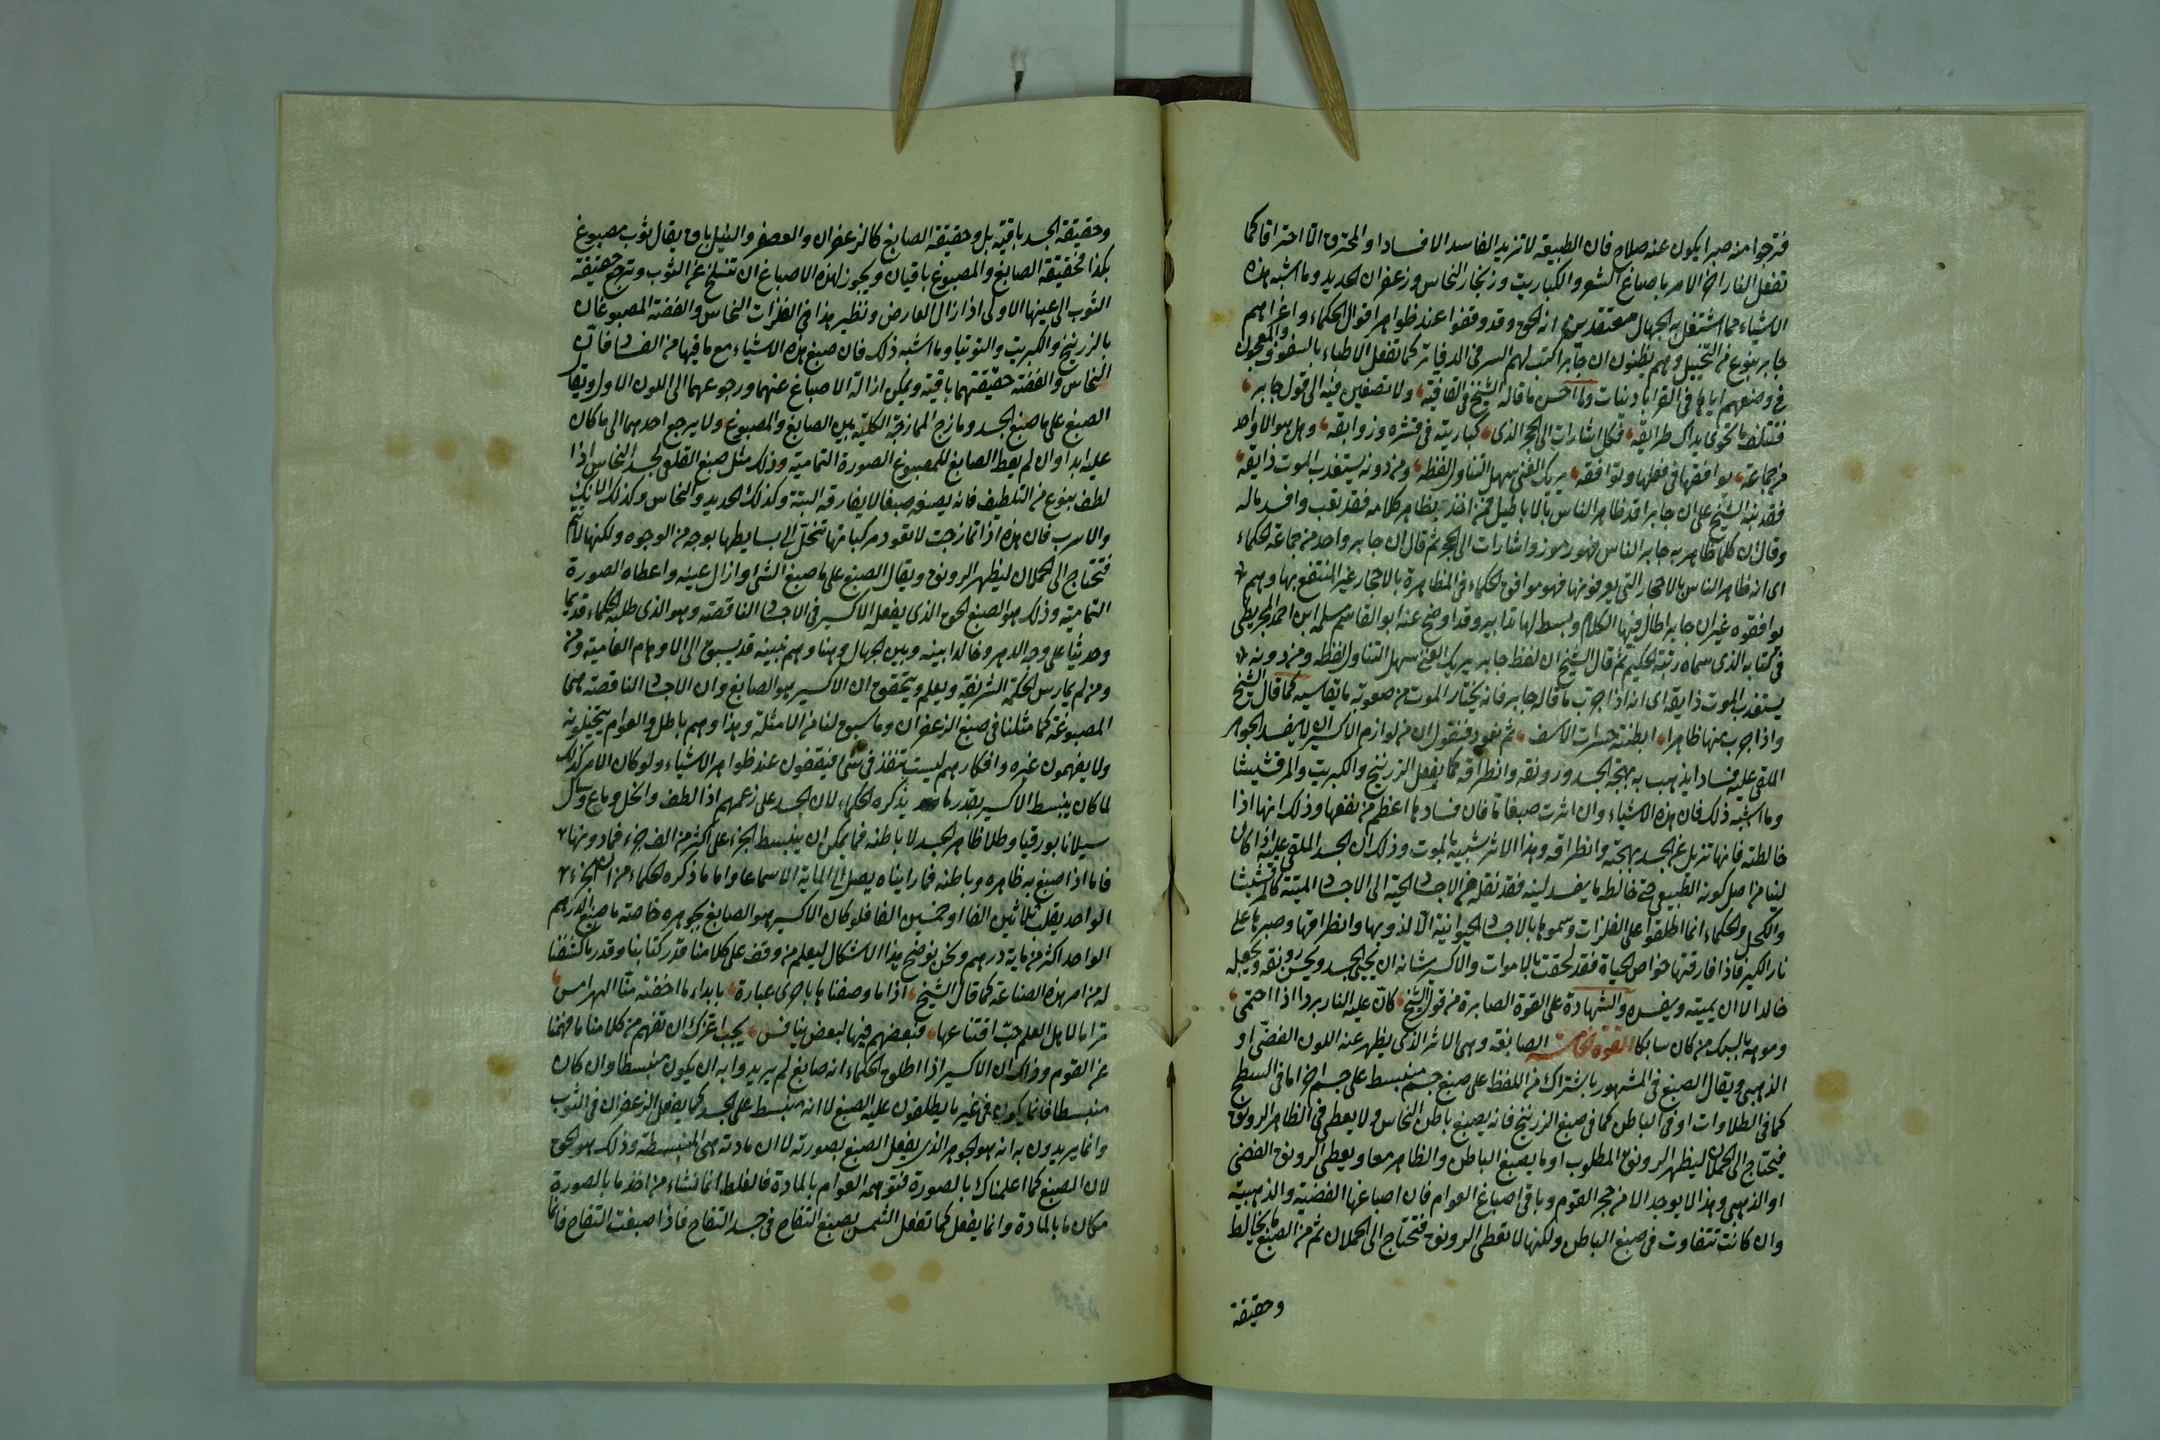 فترجوا منه صبرا يكون عنه صلاح فان الطبيعة لا تزيد الفاسد الا فسادا والمحترق الا احتراقا كما
تفعل النار اخر الامر باصباغ الشعر والكباريت وزنجار النحاس وزعفران الحديد وما اشبه هذه
الاشياء مما اشتغل به الجهال معتقدين انه الحق وقد وقفوا عند ظواهر اقوال الحكماء واغراهم
جابر بنوع من التخييل وهم يظنون ان جابرا كتب لهم السر في الدفاتر كما تفعل الاطباء بالسفوف والمعجون
في وضعهم اياها في القراباذينات وما احسن ما قاله الشيخ في القافية ولا تصغين فيه الى قول جابر
فتتلف ما تحوى بداك طرايقه فكل اشارات الى الحجر الذى كباريته في قشره وزوابقه وهل هو الا واحد
من جماعة يوافقها في فعلها وتوافقه يريك الغنى سهل التناول لفظه ومن دونه يستعذب الموت ذايقه
فقد نبه الشيخ على ان جابرا قد ظاهر الناس بالاباطيل فمن اخذ بظاهر كلامه فقد تعب وافسد ماله
وقال ان كلما ظاهر به جابر الناس فهو رموز واشارات الى الحجر ثم قال ان جابر واحد من جماعة الحكماء
اى انه ظاهر الناس بالاحجار التى يعرفونها فهو موافق الحكماء في المظاهرة بالاحجار غير المنتفع بها وهم
يوافقوه غير ان جابر اطال فيها الكلام وبسط لها تدابير وقد اوضح عنه ابو القاسم مسلمه ابن احمد المجريطى
في كتابه الذى سماه رتبة الحكيم ثم قال الشيخ ان لفظ جابر يريك الغنى سهل التناول لفظه ومن دونه
يستعذب الموت ذايقه اى انه اذا جرب ما قاله جابر فانه يختار الموت من صعوبة ما يقاسيه كما قال الشيخ
واذا جرب منها ظاهرا ابطنته حسرات الاسف ثم نعود فنقول ان من لوازم الاكسير ان لا يفسد الجوهر
الملقى عليه فسادا يذهب به بهجة الجسد ورونقه وانطراقه كما يفعل الزرنيخ والكبريت والمرقشيشا
وما اشبه ذلك فان هذه الاشياء وان اثرت صبغا ما فان فسادها اعظم من نفعها وذلك انها اذا
خالطته فانها تزيل عن الجسد بهجته وانطراقه وهذا الاثر شبيه بالموت وذلك ان الجسد الملقى عليه اذا كان
لينا من اصل كونه الطبيعى حتى خالطه ما يفسد لينه فقد نقله من الاجساد الحية الى الاجساد الميتة كالمرقشيشا
والكحل والحكماء انما اطلقوا على الفلزات وسموها بالاجساد الحيوانية الا لذوبها وانطراقها وصبرها على
نار الكير فاذا فارقتها خواص الحياة فقد لحقت بالاموات والاكسير شانه ان يحيى الجسد ويحسن رونقه ويجعله
خالدا لا ان يميته ويفسده والشهادة على القوة الصابرة من قول الشيخ كان عليه النار بردا اذا احتمى
وموهه بالسبك من كان سابكا القوة الخامسة الصابغه وهى الاثر الذى يظهر عنه اللون الفضى او
الذهبى ويقال الصبغ في المشهور باشتراك من اللفظ على صبغ جسم منبسط على جسم اخر اما في السطح
كما في الطلاوات او في الباطن كما في صبغ الزرنيخ فانه يصبغ باطن النحاس ولا يعطى في الظاهر الرونق
فيحتاج الى الحملان ليظهر الرونق المطلوب او ما يصبغ الباطن والظاهر معا ويعطى الرونق الفضى
او الذهبى وهذا لا يوجد الا من حجر القوم وباقى اصباغ العوام فان اصباغها الفضية والذهبية
وان كانت تتفاوت في صبغ الباطن ولكنها لا تعطى الرونق فتحتاج الى الحملان ثم من الصبغ ما يخالط
وحقيقة
وحقيقة الجسد باقية بل وحقيقة الصابغ كالزعفران والعصفر والنيل باق يقال ثوب مصبوغ
بكذا فحقيقة الصابغ والمصبوغ باقيان ويجوز لهذه الاصباغ ان تنسلخ عن الثوب وترجع حقيقة
الثوب الى عينها الاولى اذا زال العارض ونظير هذا في الفلزات النحاس والفضة المصبوغان
بالزرنيخ والكبريت والتوتيا وما اشبه ذلك فان صبغ هذه الاشياء مع ما فيها من الفساد فان
النحاس والفضة حقيقتهما باقية ويمكن ازالة الاصباغ عنهما ورجوعهما الى اللون الاول ويقال
الصبغ على ما صبغ الجسد ومازج الممازجة الكلية بين الصابغ والمصبوغ ولا يرجع احدهما الى ما كان
عليه ابدا وان لم يعط الصابغ للمصبوغ الصورة التمامية وذلك مثل صبغ القلعى لجسد النحاس اذا
لطف بنوع من التلطيف فانه يصبغه صبغا لا يفارقه البتة وكذلك الحديد والنحاس وكذلك الانك
والاسرب فان هذه اذا تمازجت لا تعود مركباتها تنحل الى بسايطها بوجه من الوجوه ولكنها لا تتم
فتحتاج الى الحملان ليظهر الرونق ويقال الصبغ على ما صبغ الشئ وازال عينه واعطاه الصورة
التمامية وذلك هو الصبغ الحق الذى يفعله الاكسير في الاجساد الناقصة وهو الذى طلبه الحكماء قديما
وحديثا على وجه الدهر وخالدا بينه وبين الجهال وهنا وهم نبينه قد يسبق الى الاوهام العامية ومن
ومن لم يمارس الحكمة الشريفة ويعلم ويتحقق ان الاكسير هو الصابغ وان الاجساد الناقصة هى
المصبوغة كما مثلنا في صبغ الزعفران وما سبق لنا من الامثلة وهذا وهم باطل والعوام يتخيلونه
ولا يفهمون غيره وافكارهم ليست تنفذ في شئ فيقفون عند ظواهر الاشياء ولو كان الامر كذلك
لما كان ينبسط الاكسير بقدر ما يذكره الحكماء لان الجسد على زعمهم اذا لطف وانحل وماع وسال
سيلانا بورقيا وطلا ظاهر الجسد لا باطنه فما يمكن ان ينبسط الجزء على اكثر من الف جزء فما دونها
فاما اذا صبغ به ظاهره وباطنه فما رايناه يصل الى الماية الا سماعا واما ما ذكره الحكماء من ان الجزء
الواحد يقلب ثلاثين الفا او خمسين الفا فلو كان الاكسير هو الصابغ بجوهره خاصة ما صبغ الدرهم
الواحد اكثر من ماية درهم ونحن نوضح هذا الاشكال ليعلم من وقف على كلامنا قدر كتابنا وقدر ما كشفنا
له من امر هذه الصناعة كما قال الشيخ اذا ما وصفناها باحرى عبارة بابداء ما اخفته منا الهرامس
ترامالا هل العلم حب اقتناعها فبعضهم فيها لبعض ينافس يجب اعزك ان تفهم من كلامنا ما فهمنا
عن القوم وذلك ان الاكسير اذا اطلق الحكماء انه صابغ لم يريدوا به ان يكون منبسطا وان كان
منبسطا فانما يكون في غير ما يطلقون عليه الصبغ لا انه منبسط على الجسد كما يفعل الزعفران في الثوب
وانما يريدون به انه هو الجوهر الذى يفعل الصبغ بصورته لا ان مادته هى المنبسطة وذلك هو الحق
لان الصبغ كما اعلمناك بالصورة فتوهمه العوام بالمادة فالغلط انما نشاء من اخذ ما بالصورة
مكان ما بالمادة وانما يفعل كما تفعل الشمس بصبغ التفاح في جسد التفاح فاذا صبغت التفاح فانما